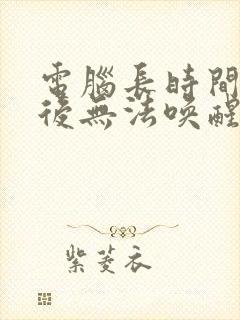 電腦長時間
後無法喚醒
紫菱衣